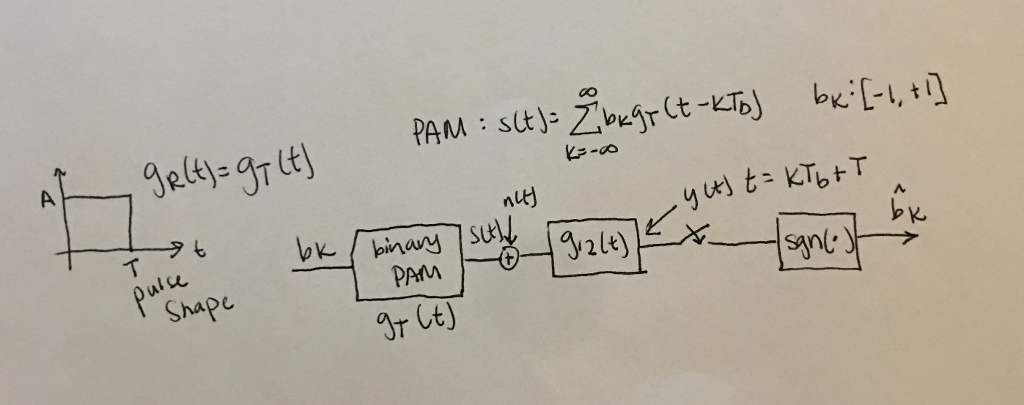 PAM : s(t) = ∞ Σ k=-∞ bk gT (t - kTb) bk : [-1, +1]
gR(t) = gT(t)
A
t
T
pulse shape
bk
binary PAM
gT(t)
s(t)
n(t)
+
g12(t)
y(t) t = kTb + T
sgn(·)
b̂k